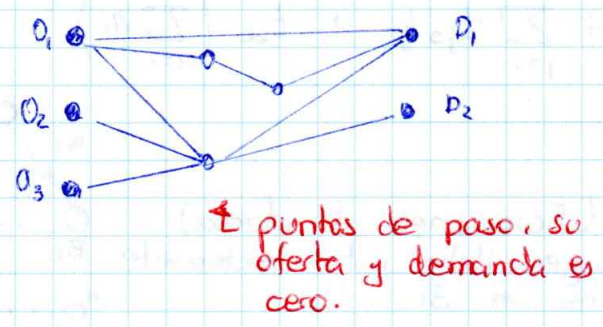 O₁ D₁
O₂ D₂
O₃
puntos de paso, su
oferta y demanda es
cero.